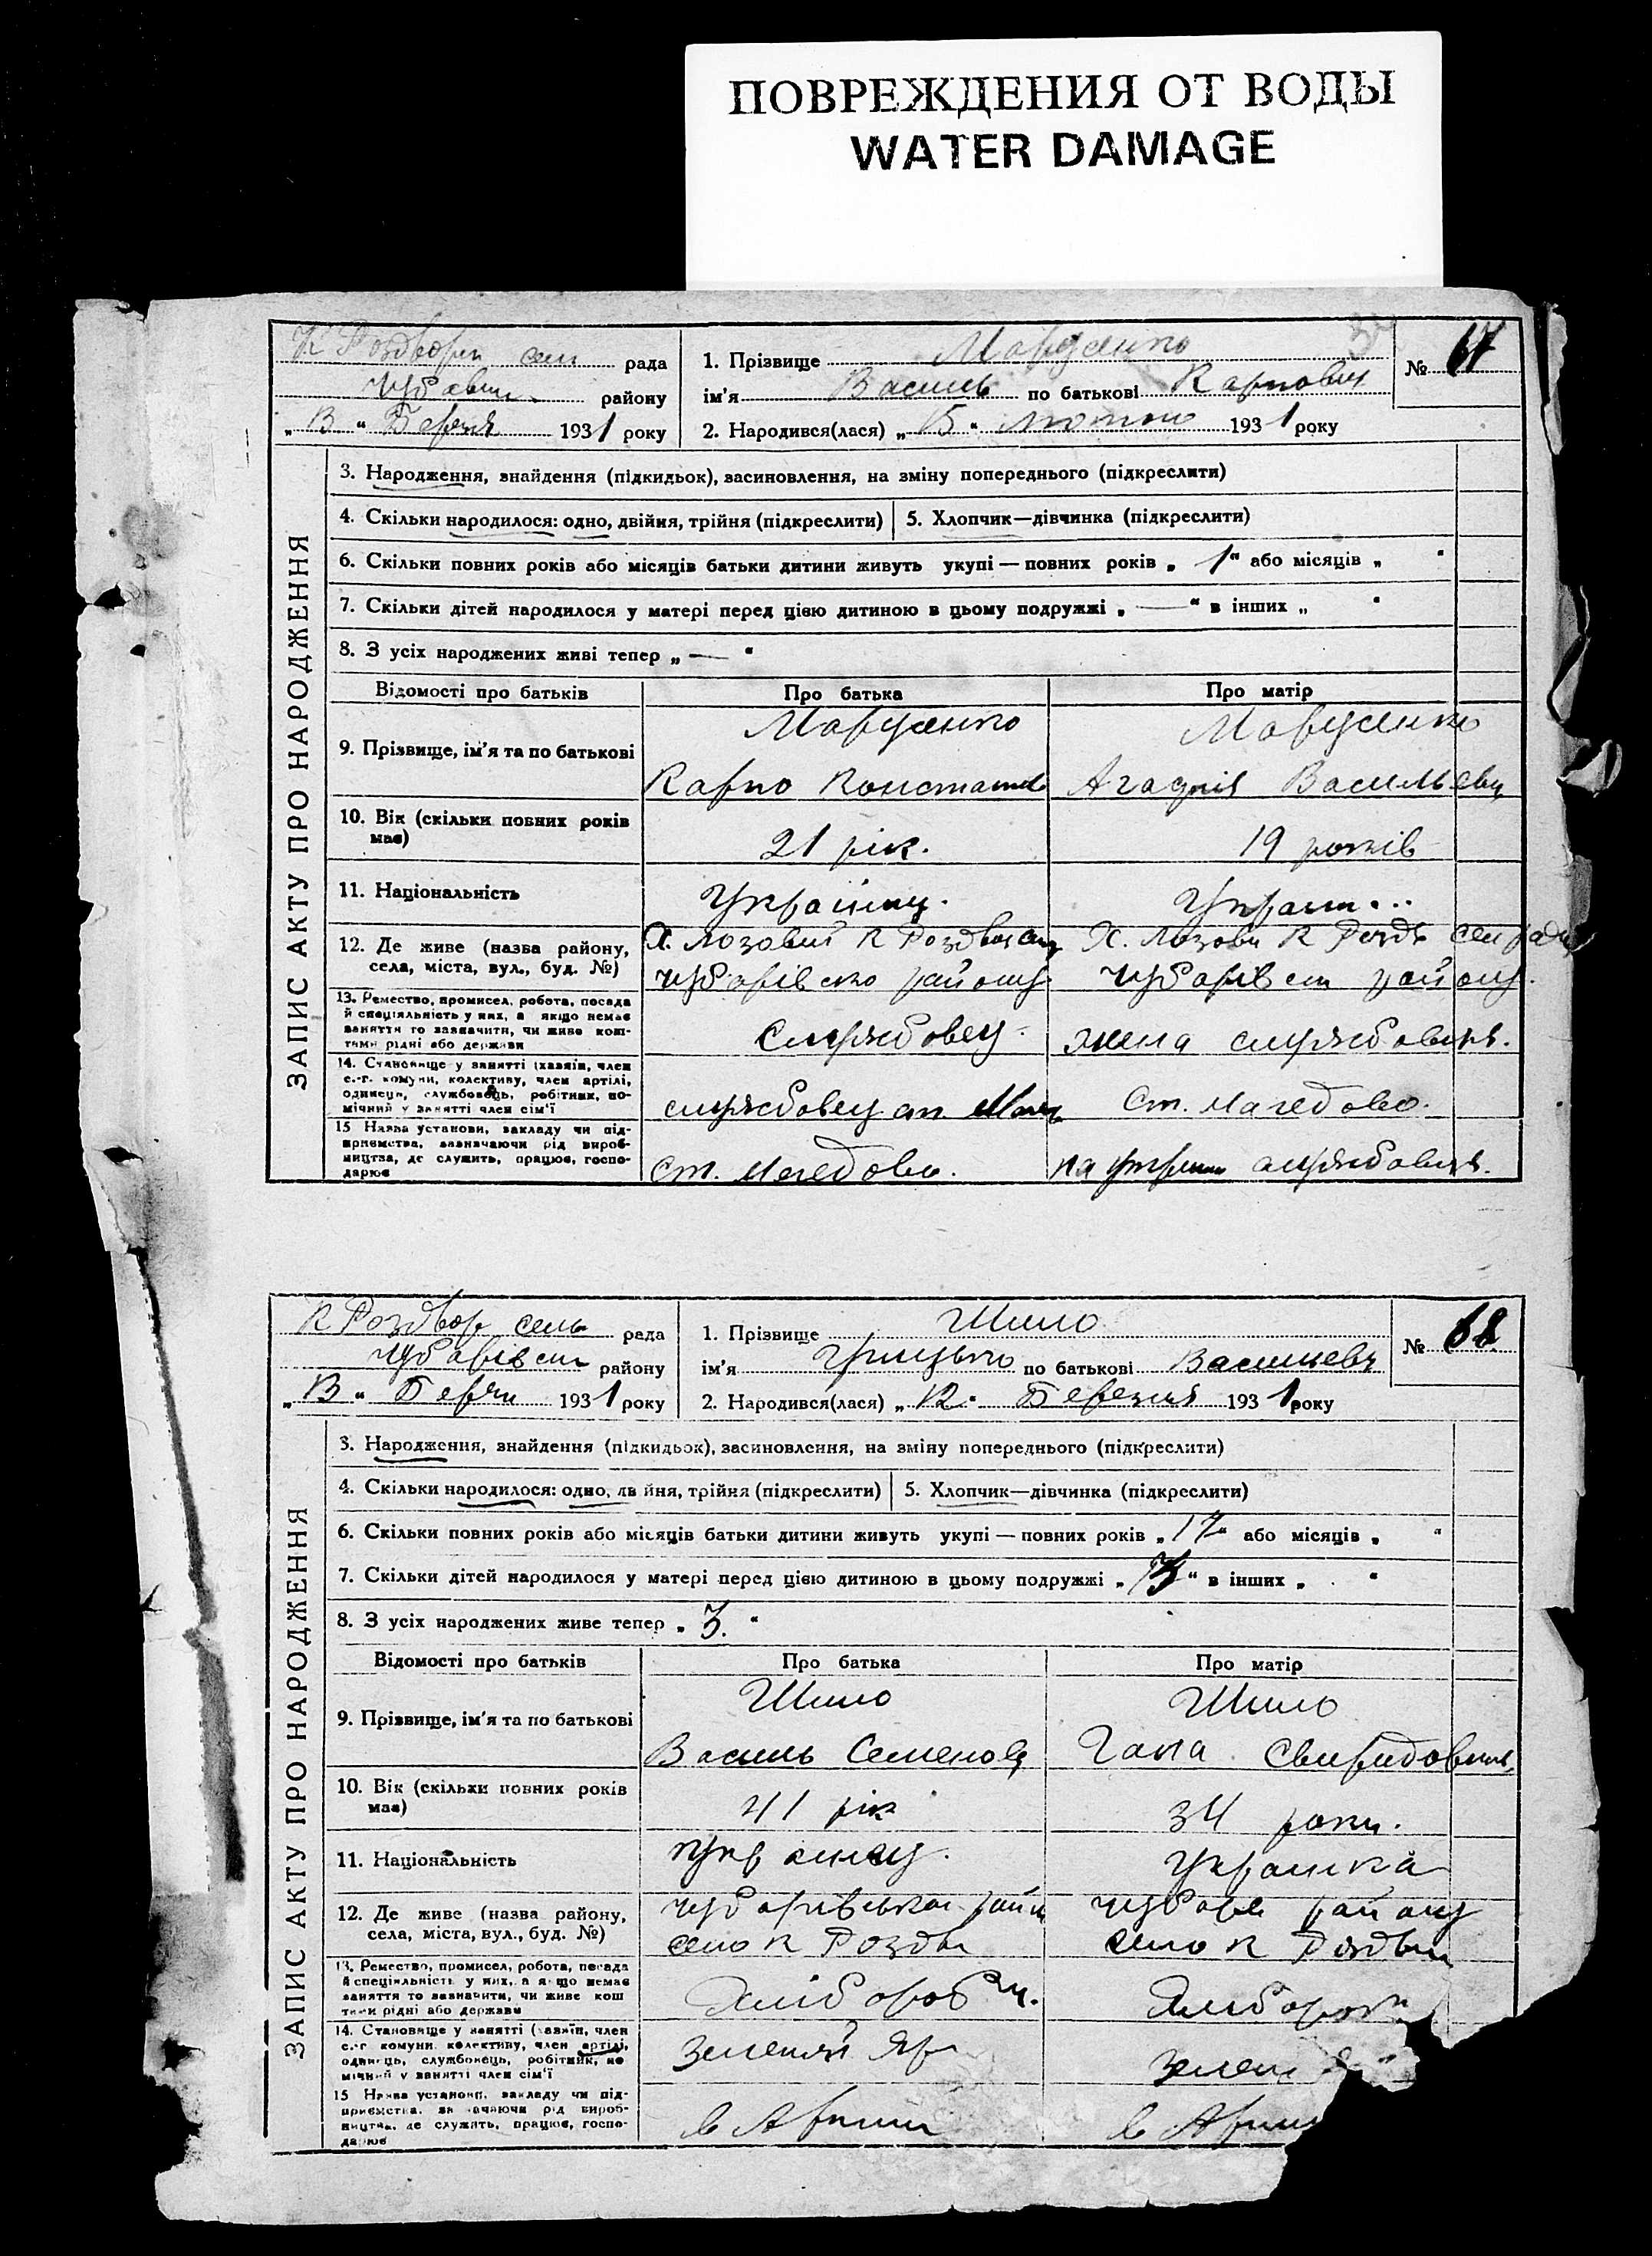 ПОВРЕЖДЕНИЯ ОТ ВОДЫ
WATER DAMAGE
К Роздвори сел рада
района району
„ 13 “ Берця 1931 року
1. Прізвище
ім'я Василь по батькові Карпович
2. Народився(лася) „ 15 “ лютого 1931 року
№ 67
ЗАПИС АКТУ ПРО НАРОДЖЕННЯ
3. Народження, знайдення (підкидьок), засиновлення, на зміну попереднього (підкреслити)
4. Скільки народилося: одно, двійня, трійня (підкреслити) 5. Хлопчик—дівчинка (підкреслити)
6. Скільки повних років або місяців батьки дитини живуть укупі — повних років „ 1 “ або місяців „ “
7. Скільки дітей народилося у матері перед цією дитиною в цьому подружжі „ — “ в інших „ “
8. З усіх народжених живі тепер „ — “
Відомості про батьків Про батька Про матір
9. Прізвище, ім'я та по батькові
Карпо Констант Васильевн
10. Вік (скільки повних років має) 21 рік. 19 років
11. Національність Українец. Украін...
12. Де живе (назва району, села, міста, вул., буд. №)
Х. Лозовий К Роздв Х. Лозови К Роздв сел ради
чубарівско району чубарівск району.
13. Ремество, промисел, робота, посада й спеціяльність у них, а якщо немає заняття то зазначити, чи живе коштами рідні або держави
службовец. жена службовця.
14. Становище у занятті (хазяїн, член с.-г. комуни, колективу, член артілі, одинець, службовець, робітник, помічний у занятті член сім'ї
службовец ст. Магедово.
15 Назва установи, закладу чи підприємства, зазначаючи рід виробництва, де служить, працює, господарює
ст. Магедово. на утрим службовця.
К Роздвор сель рада
чубарівск району
„ 13 “ Берзн 1931 року
1. Прізвище Шило
ім'я Грицько по батькові Васильевч
2. Народився(лася) „ 12 “ Березня 1931 року
№ 68
ЗАПИС АКТУ ПРО НАРОДЖЕННЯ
3. Народження, знайдення (підкидьок), засиновлення, на зміну попереднього (підкреслити)
4. Скільки народилося: одно, двійня, трійня (підкреслити) 5. Хлопчик—дівчинка (підкреслити)
6. Скільки повних років або місяців батьки дитини живуть укупі — повних років „ 17 “ або місяців „ “
7. Скільки дітей народилося у матері перед цією дитиною в цьому подружжі „ “ в інших „ “
8. З усіх народжених живе тепер „ 3. “
Відомості про батьків Про батька Про матір
9. Прізвище, ім'я та по батькові Шило Шило
Василь Семенов Гана Свиридовна
10. Вік (скільки повних років має) 41 рік 34 роки.
11. Національність Українец. Украінка
12. Де живе (назва району, села, міста, вул., буд. №)
чубарівськ район чубарів району
село К Роздв село К Роздви
13. Ремество, промисел, робота, посада й спеціяльність у них, а якщо немає заняття то зазначити, чи живе коштами рідні або держави
Хлібороб Хлібороб
14. Становище у занятті (хазяїн, член с.-г. комуни, колективу, член артілі, одинець, службовець, робітник, помічний у занятті член сім'ї
Зелений Яр Зелен
15 Назва установи, закладу чи підприємства, зазначаючи рід виробництва, де служить, працює, господарює
в Артили в Арт